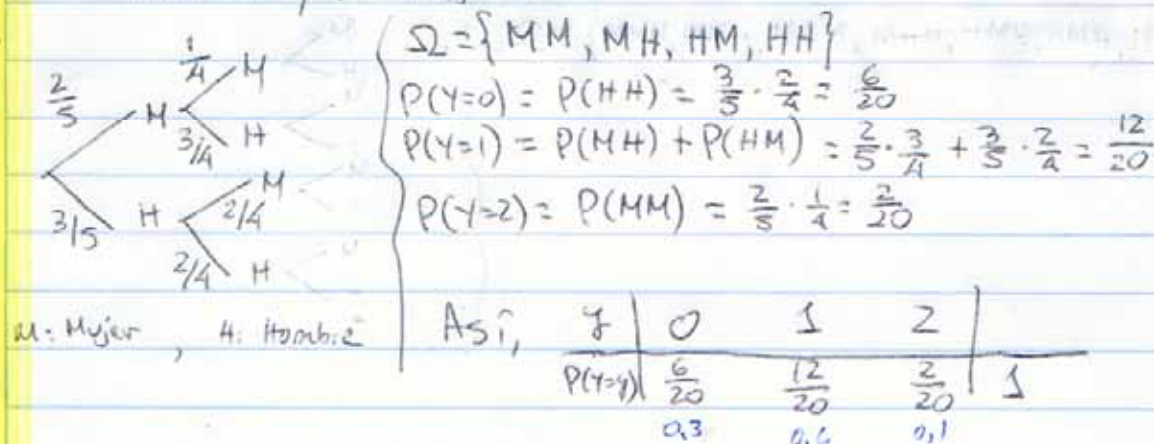 2/5
1/4 M
M
3/4 H
3/5 H
2/4 M
2/4 H
M: Mujer , H: Hombre
Ω = { MM, MH, HM, HH }
P(Y=0) = P(HH) = 3/5 · 2/4 = 6/20
P(Y=1) = P(MH) + P(HM) = 2/5 · 3/4 + 3/5 · 2/4 = 12/20
P(Y=2) = P(MM) = 2/5 · 1/4 = 2/20
Así, y | 0 1 2
P(Y=y) | 6/20 12/20 2/20 | 1
0,3 0,6 0,1